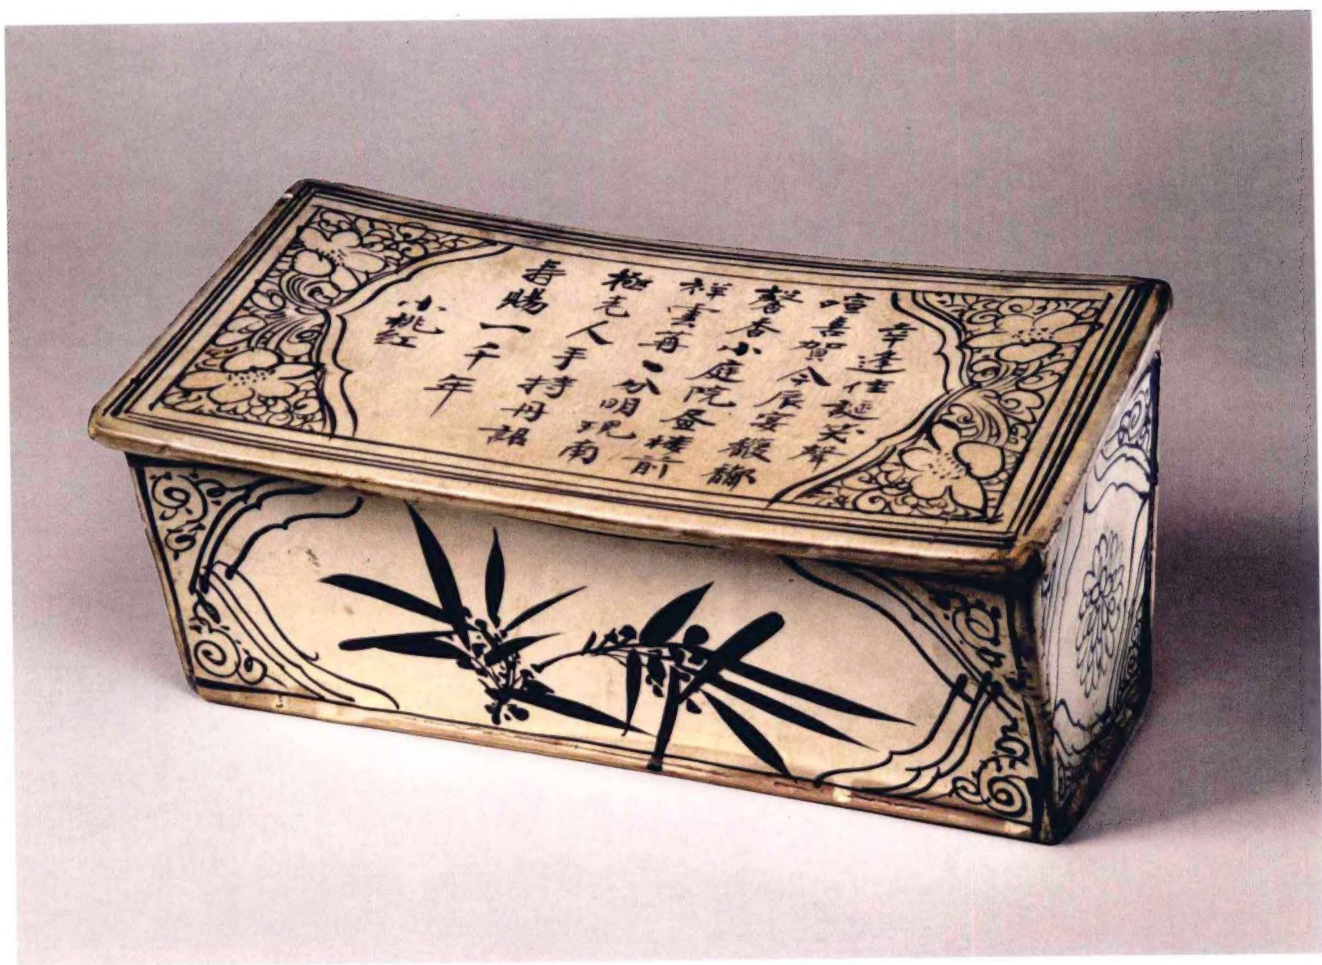 幸逢佳誕笑聲
喧喜賀今辰宴馥
馨香小庭院畫樓前
祥雲再々分明現南
極老人手持丹詔
壽賜一千年
小桃红